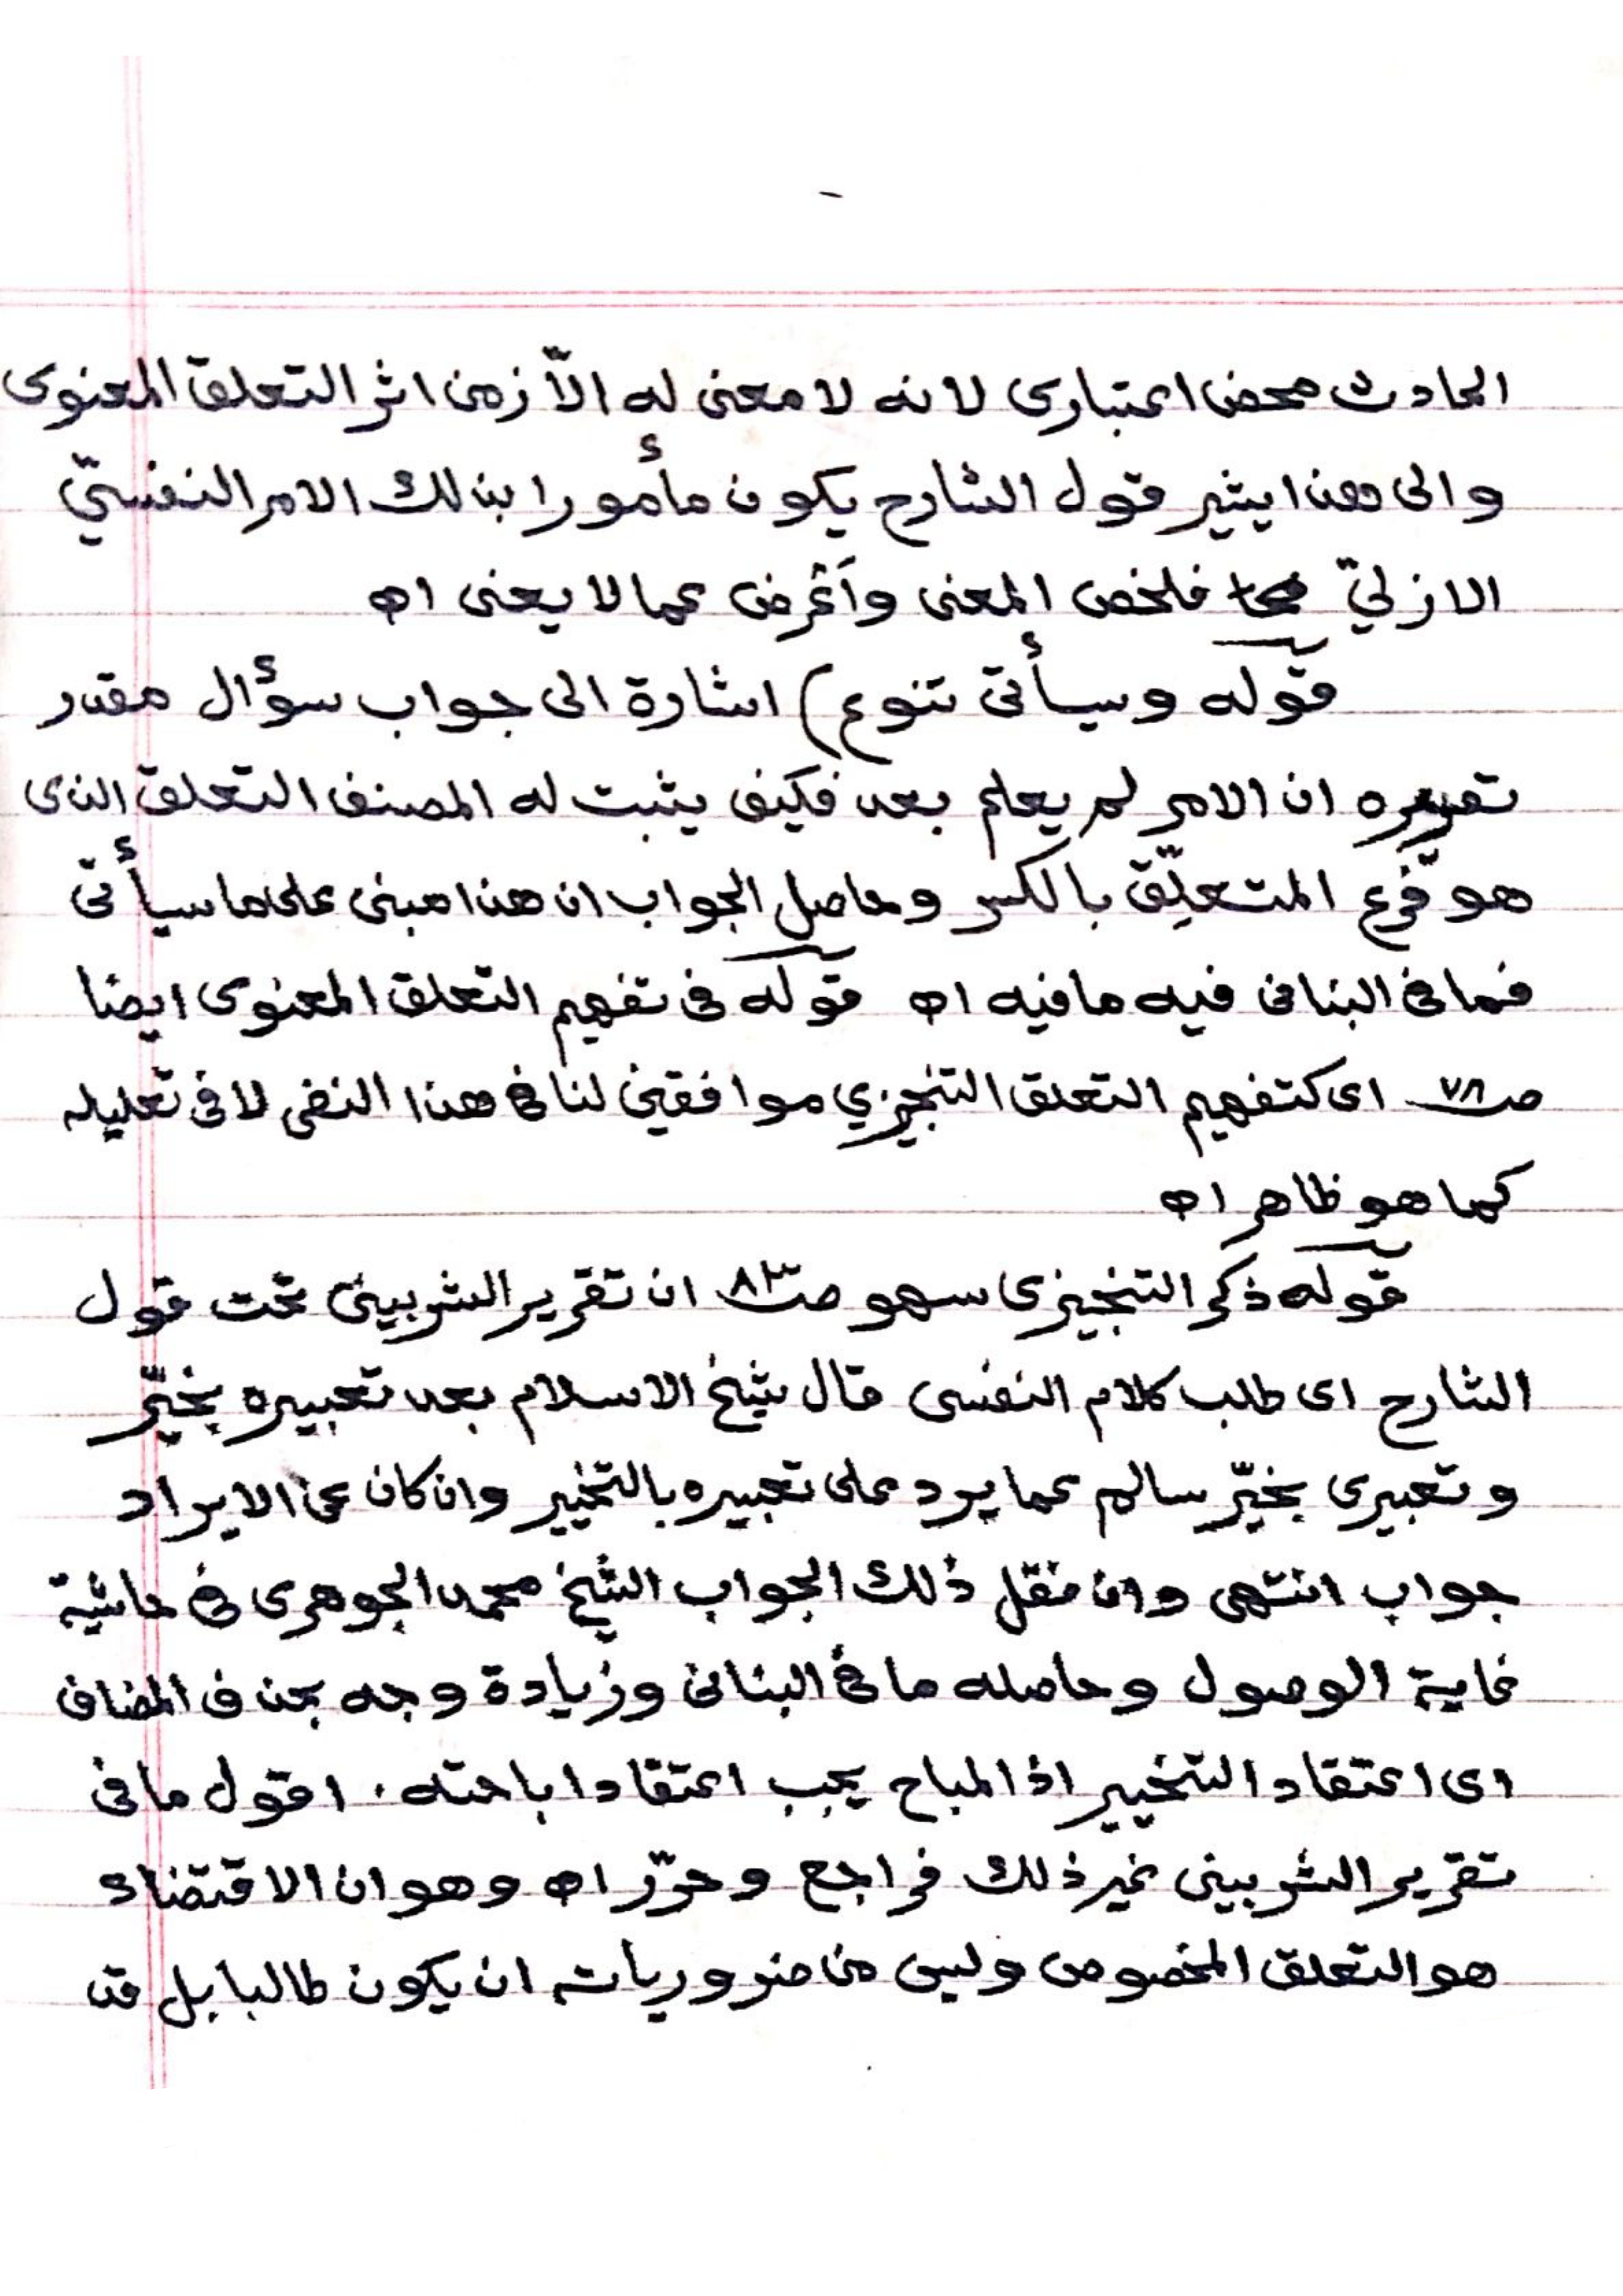 الحادث محض اعتبارى لانه لا معنى له الّا زمن اثر التعلق المعنوى
والى هذا يشير قول الشارح يكون مأمورا بذلك الامر النفسيّ
الازليّ فلخص المعنى وأعرض عما لا يعنى اه
قوله وسيأتى تنوع) اشارة الى جواب سؤال مقدر
تقريره ان الامر لم يعلم بعد فكيف يثبت له المصنف التعلق الذى
هو فرع المتعلِّق بالكسر وحاصل الجواب ان هذا مبنى على ما سيأتى
فما فى البنانى فيه ما فيه اه قوله فى تفهيم التعلق المعنوى ايضا
صـ٧٨ اى كتفهيم التعلق التنجيزي موافقين لنا فى هذا النفى لا فى تعليله
كما هو ظاهر اه
قوله ذكر التنجيزى سهو صـ٨٣ ان تقرير الشربينى تحت قول
الشارح اى طلب كلام النفسى قال شيخ الاسلام بعد تعبيره بخيّر
وتعبيرى بخيّر سالم عما يرد على تعبيره بالتخيير وان كان عن الايراد
جواب انتهى وان نقل ذلك الجواب الشيخ محمد الجوهرى فى حاشية
غاية الوصول وحاصله ما فى البنانى وزيادة وجه بحذف المضاف
اى اعتقاد التخيير اذ المباح يجب اعتقاد اباحته . اقول ما فى
تقرير الشربينى غير ذلك فراجع وحرّر اه وهو ان الاقتضاء
هو التعلق المخصوص وليس من ضروريات ان يكون طالبا بل قد